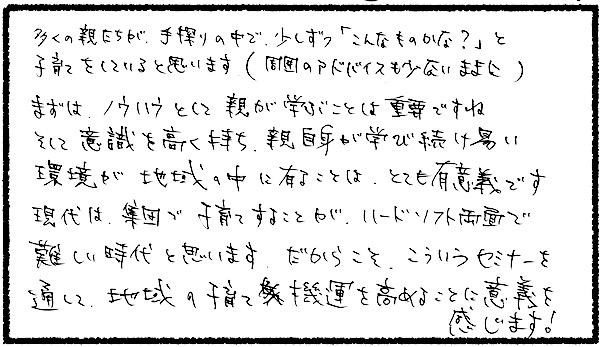 多くの親たちが、手探りの中で、少しずつ「こんなものかな？」と
子育てをしていると思います（周囲のアドバイスも少ないままに）
まずは、ノウハウとして親が学ぶことは重要ですね
そして意識を高く持ち、親自身が学び続け易い
環境が地域の中に有ることは、とても有意義です
現代は、集団で子育てすることが、ハードソフト両面で
難しい時代と思います。だからこそ、こういうセミナーを
通して、地域の子育て機運を高めることに意義を
感じます!